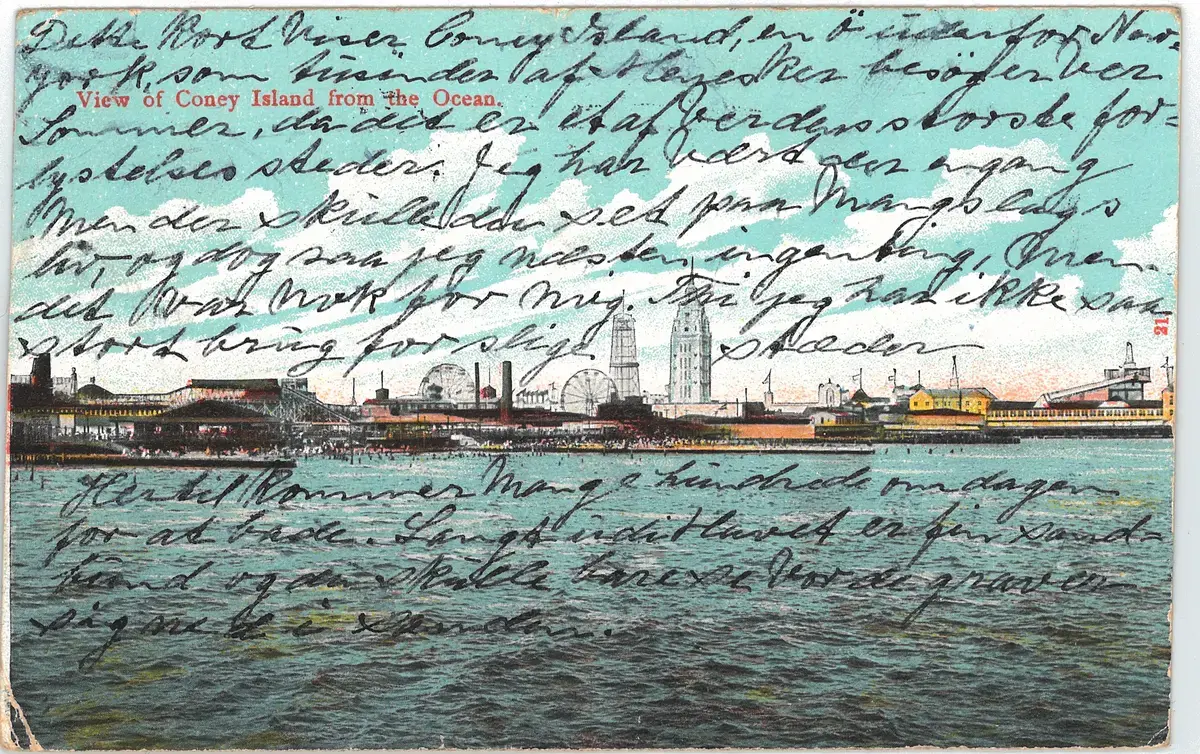 Dette Kort Viser Coney Island, en Ö udenfor New-
york, som tusinder af Menesker besöger ver
View of Coney Island from the Ocean.
Sommer, da det er et af Verdens störste for=
lystelses steder. Jeg har Vært der engang
Men der skulle du set paa Mangslags
liv, og dog saa jeg næsten ingenting, Men
det Var Nok for Mig. Thi jeg har ikke saa
stort brug for slige stæder
12
Her til Kommer Mange hundrede om dagen
for at bade. Langt ud i Havet er fin sand=
bund og du skulle bare se Vor de graver
sig ned i sanden.